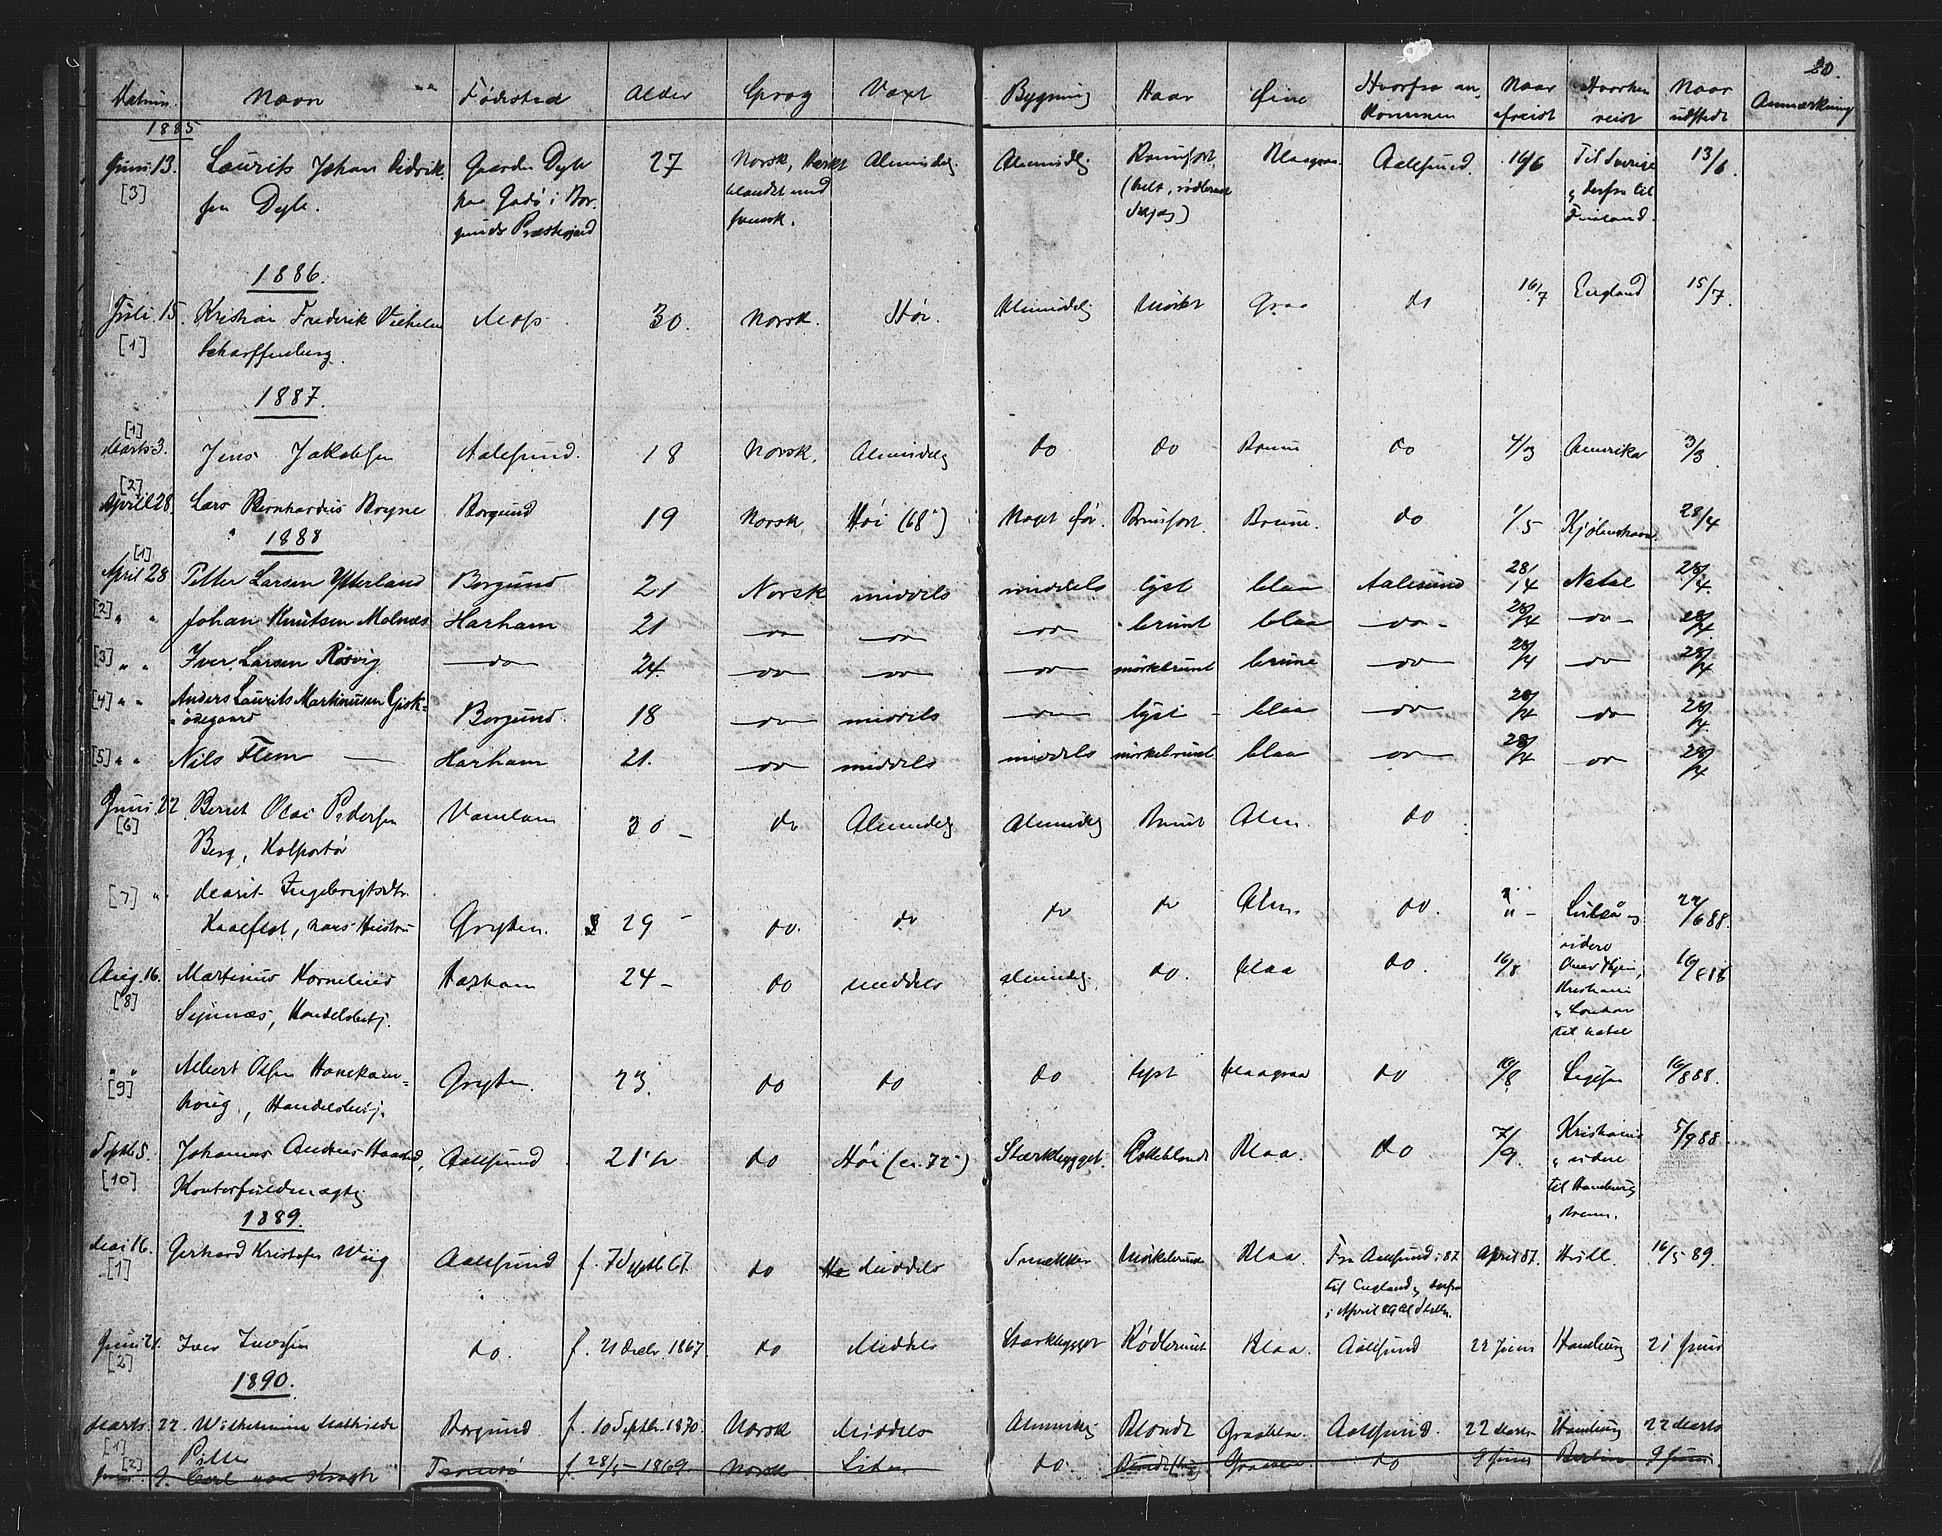 20.
Datum Navn Fødested Alder Sprog Vaxt Bygning Haar Øine Hvorfra an- Naar Hvorhen Naar Anmærkning
kommen afreist reist udstedt
1885
Juni 13. Laurits Johan Didrik- Gaarden Dyb 27 Norsk, Almindelig Almindelig Blaagraa Aalesund. 16/6 Til Sverige 13/6
[3] sen Dyb. paa Godø i Bor- blandet med (helt, rødbrunt derfra til
gunds Præstegjeld svensk. Skjæg) Finland.
1886.
Juli 15. Kristian Frederik Vilhelm Moss 30. Norsk. Høi. Almindelig Mørkt Graa do 16/7 England 15/7.
[1] Scharffenberg.
1887.
[1]
Marts 3. Jens Jakobsen Aalesund. 18 Norsk. Almindelig do do Brune do 4/3 Amerika 3/3
[2]
April 28. Lars Bernhardus Borgund 19 Norsk Høi (68") Brune. do 1/5 Kjøbenhavn 28/4
1888
[1]
April 28 Petter Larsen Ytterland Borgund 21 Norsk middels middels lyst blaa Aalesund 28/4 Natal 28/4.
[2] " " Johan Knutsen Molnes Harham 21 do do do brunt blaa do 28/4 do 28/4
[3] " " Iver Larsen Røsvig do 24. do do do mørkebrunt brune do 28/4 do 28/4
[4] " " Anders Laurits Martinusen Gisk-
ødegaard Borgund. 18 do middels do lyst blaa do 28/4 do 28/4
[5] " " Nils Flem Harham 21. do middels middels mørkebrunt blaa do 28/4 do 28/4
Juni 22 Berret Olai Pedersen 30 do Almindelig Almindelig Brunt Alm. do
[6] Berg, Kolportør
[7] " Marit Ingebrigtsdtr.
Haaeflot, hans Hustru Gryten. 29 do. do do do Alm. do. " 22/6 88.
videre
Aug. 16. Martinus Kornelius Harham 24 do middels almindelig do. blaa do. 16/8 16/8 18
[8] Synnæs, Handelsbetj. Kristiania
London
til Natal
" " Albert Olsen Hanekam- Gryten 23. do do do lyst blaagraa do 16/8 16/8 88.
[9] houg, Handelsbetj.
Septb 5. Johannes Andreas Aalesund 21 1/2 do Høi (ca. 72") Stærktbygget. Blaa. do 7/9. Kristiania 5/9 88.
[10] Kontorfuldmægtig videre
til Hamburg
1889.
Mai 16. Gerhard Kristofer Wiig Aalesund f. 7 Septb 67. do Middels Smækker Mørkebrunt Blaa. Fra Aalesund i 87 April 87. Hull. 16/5 89.
[1] til England, derfra
i April
Juni 21. Iver Iversen do. f. 21 Decbr. 1867. do Middels Stærktbygget Rødbrunt Blaa. Aalesund 22 Juni Hamburg 21 Juni
[2]
1890.
Marts 22. Wilhelmine Mathilde Borgund f. 10 Septbr. 1870. Norsk Middels Almindelig Blondt Graablaa. Aalesund. 22 Marts Hamburg 22 Marts
[1]
[2]
Juni 9. Carl von Krogh Tromsø f. 28/5 1869. Norsk Liten do. Blondt Graa do 9 Juni Berlin 9 Juni